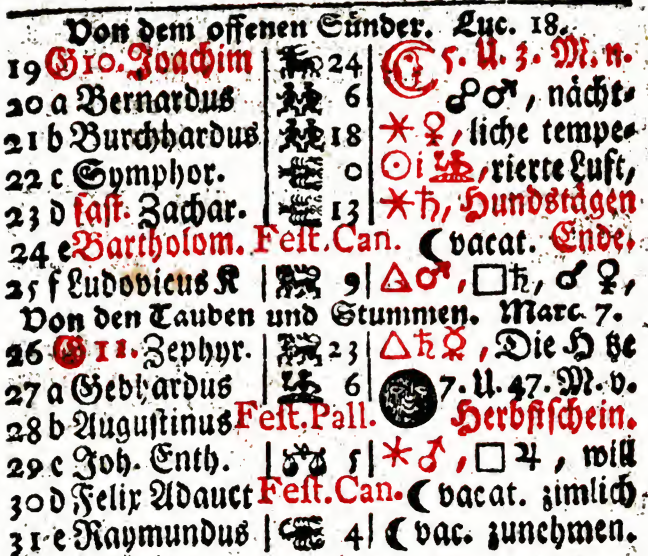 Von dem offenen Sünder. Luc. 18.
19 G 10. Joachim 24 5. U. 3. M. n.
20 a Bernardus 6 ☍♂, nächt-
21 b Burchhardus 18 ⚹♀, liche tempe-
22 c Symphor. 0 ☉ i ♌, rierte Luft,
23 d fast. Zachar. 13 ⚹♄, Hundstägen
24 e Bartholom. Fest. Can. ☾ vacat. Ende.
25 f Ludovicus K 9 △♂, □♄, ☌ ♀,
Von den Tauben und Stummen. Marc. 7.
26 G 11. Zephyr. 23 △♄☿, Die
27 a Gebhardus 6 7. U. 47. M. v.
28 b Augustinus Fest. Pall. Herbstschein.
29 c Joh. Enth. 5 ⚹♂, □♃, will
30 d Felix Adauct Fest. Can. ☾ vacat. zimlich
31 e Raymundus 4 ☾ vac. zunehmen.